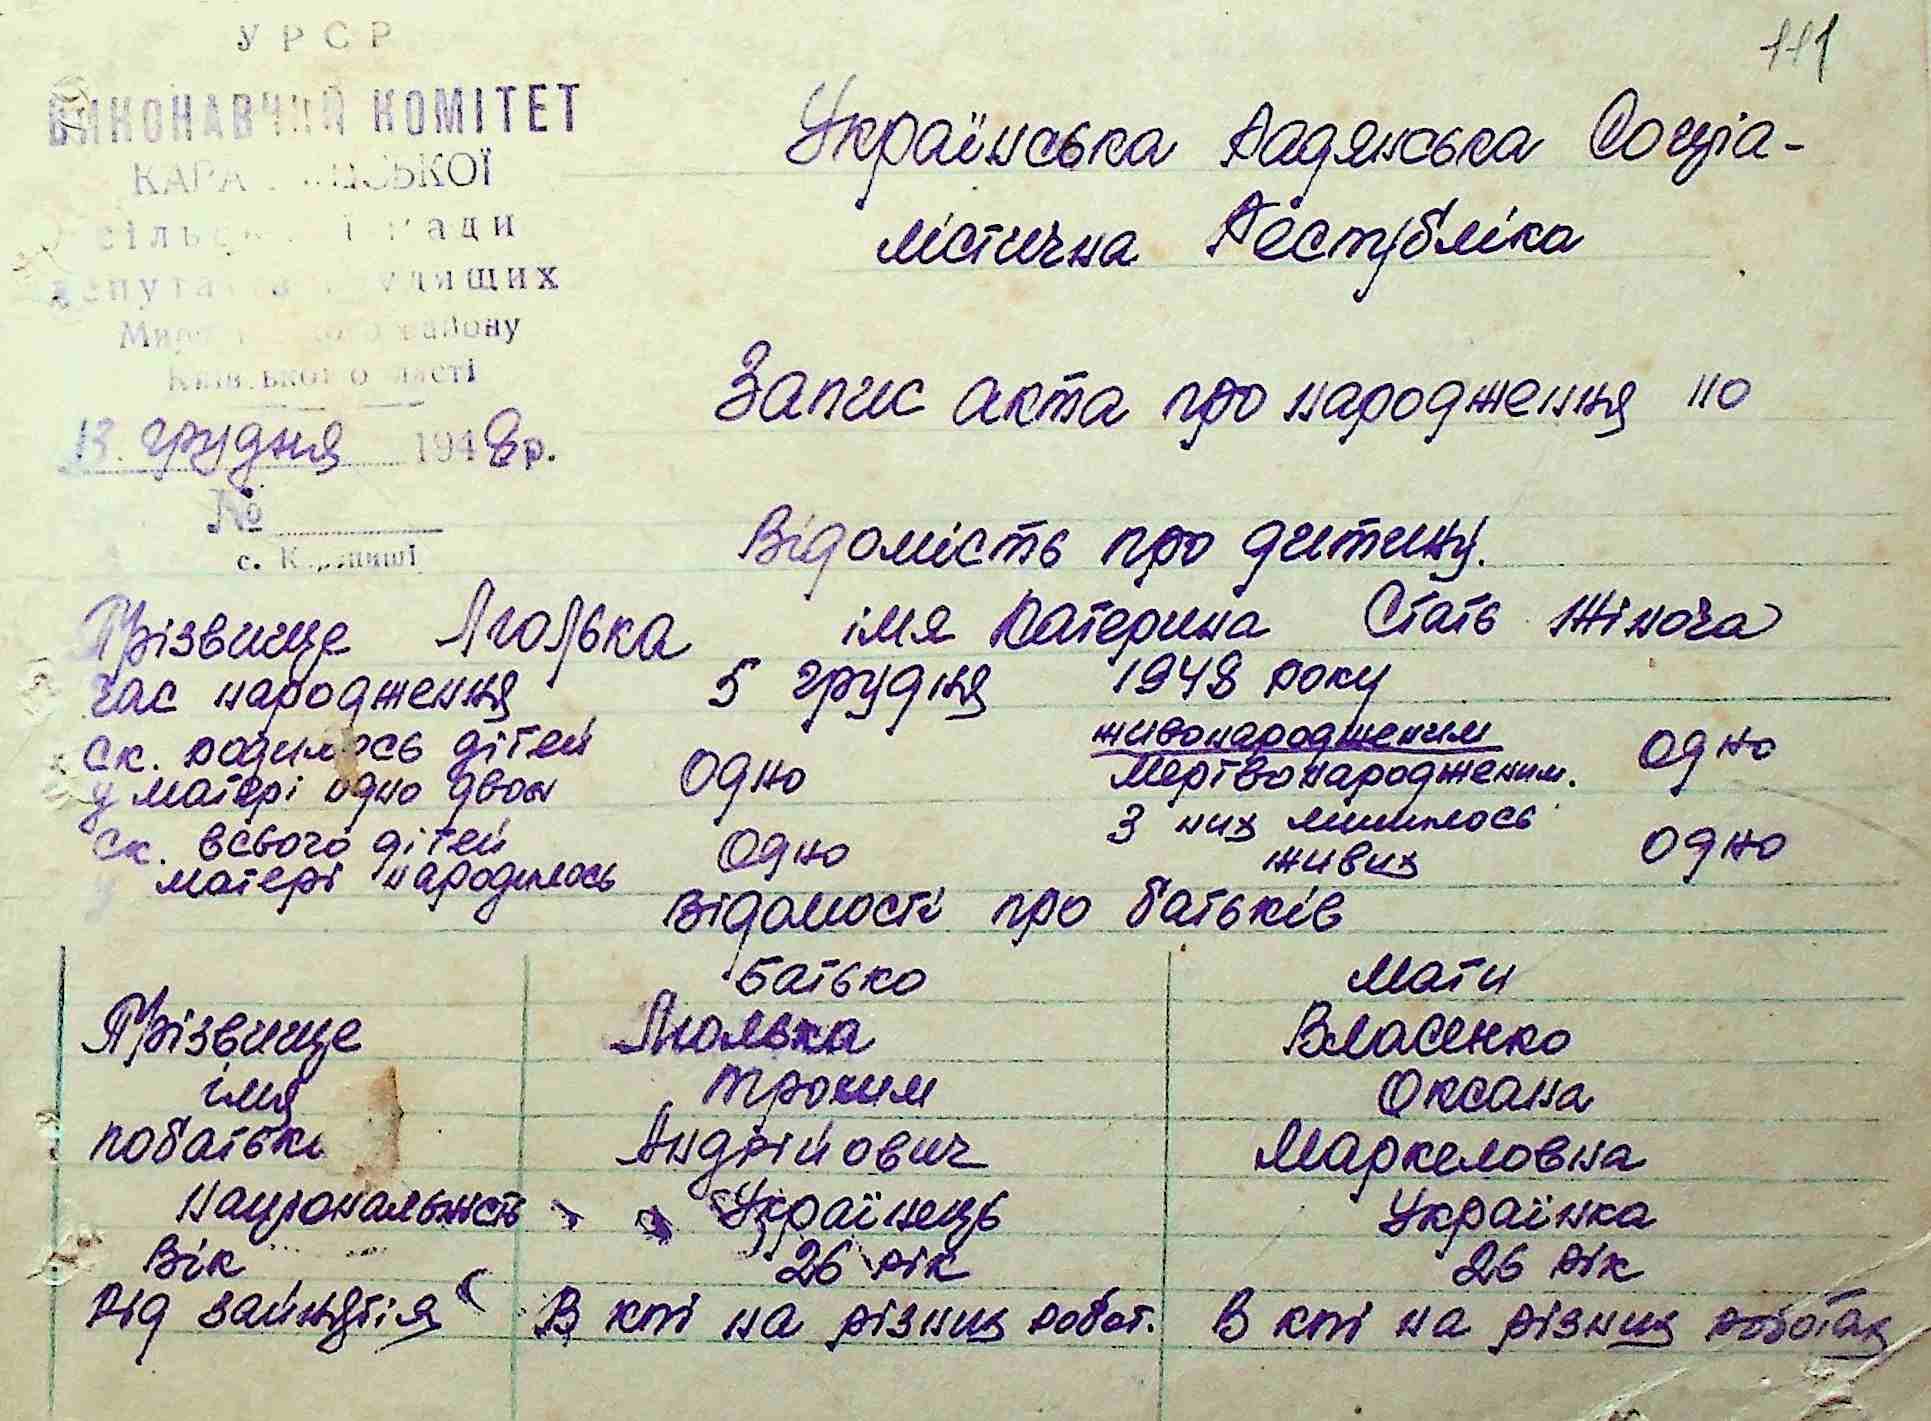 111
УРСР
ВИКОНАВЧИЙ КОМІТЕТ
сільської ради
депутатів трудящих
району
Київського області
13. грудня 1948 р.
№
с. Карапиші
Українська Радянська Соціа-
лістична Республіка
Запис акта про народження но
Відомість про дитину.
Прізвище Люлька імя Катерина Стать Жіноча
Час народження 5 грудня 1948 року
Ск. родилось дітей
у матері одно двоє одно живонародженим
мертвонародженим. одно
ск. всього дітей
у матері народилось одно З них лишилось
живих одно
Відомості про батьків
Батько Мати
Прізвище Люлька Власенко
імя Трохим Оксана
побатьк Андрійович Маркеловна
національність Українець Українка
Вік 26 рік 26 рік
Рід заняття В кті на різних робот. В кті на різних роботах